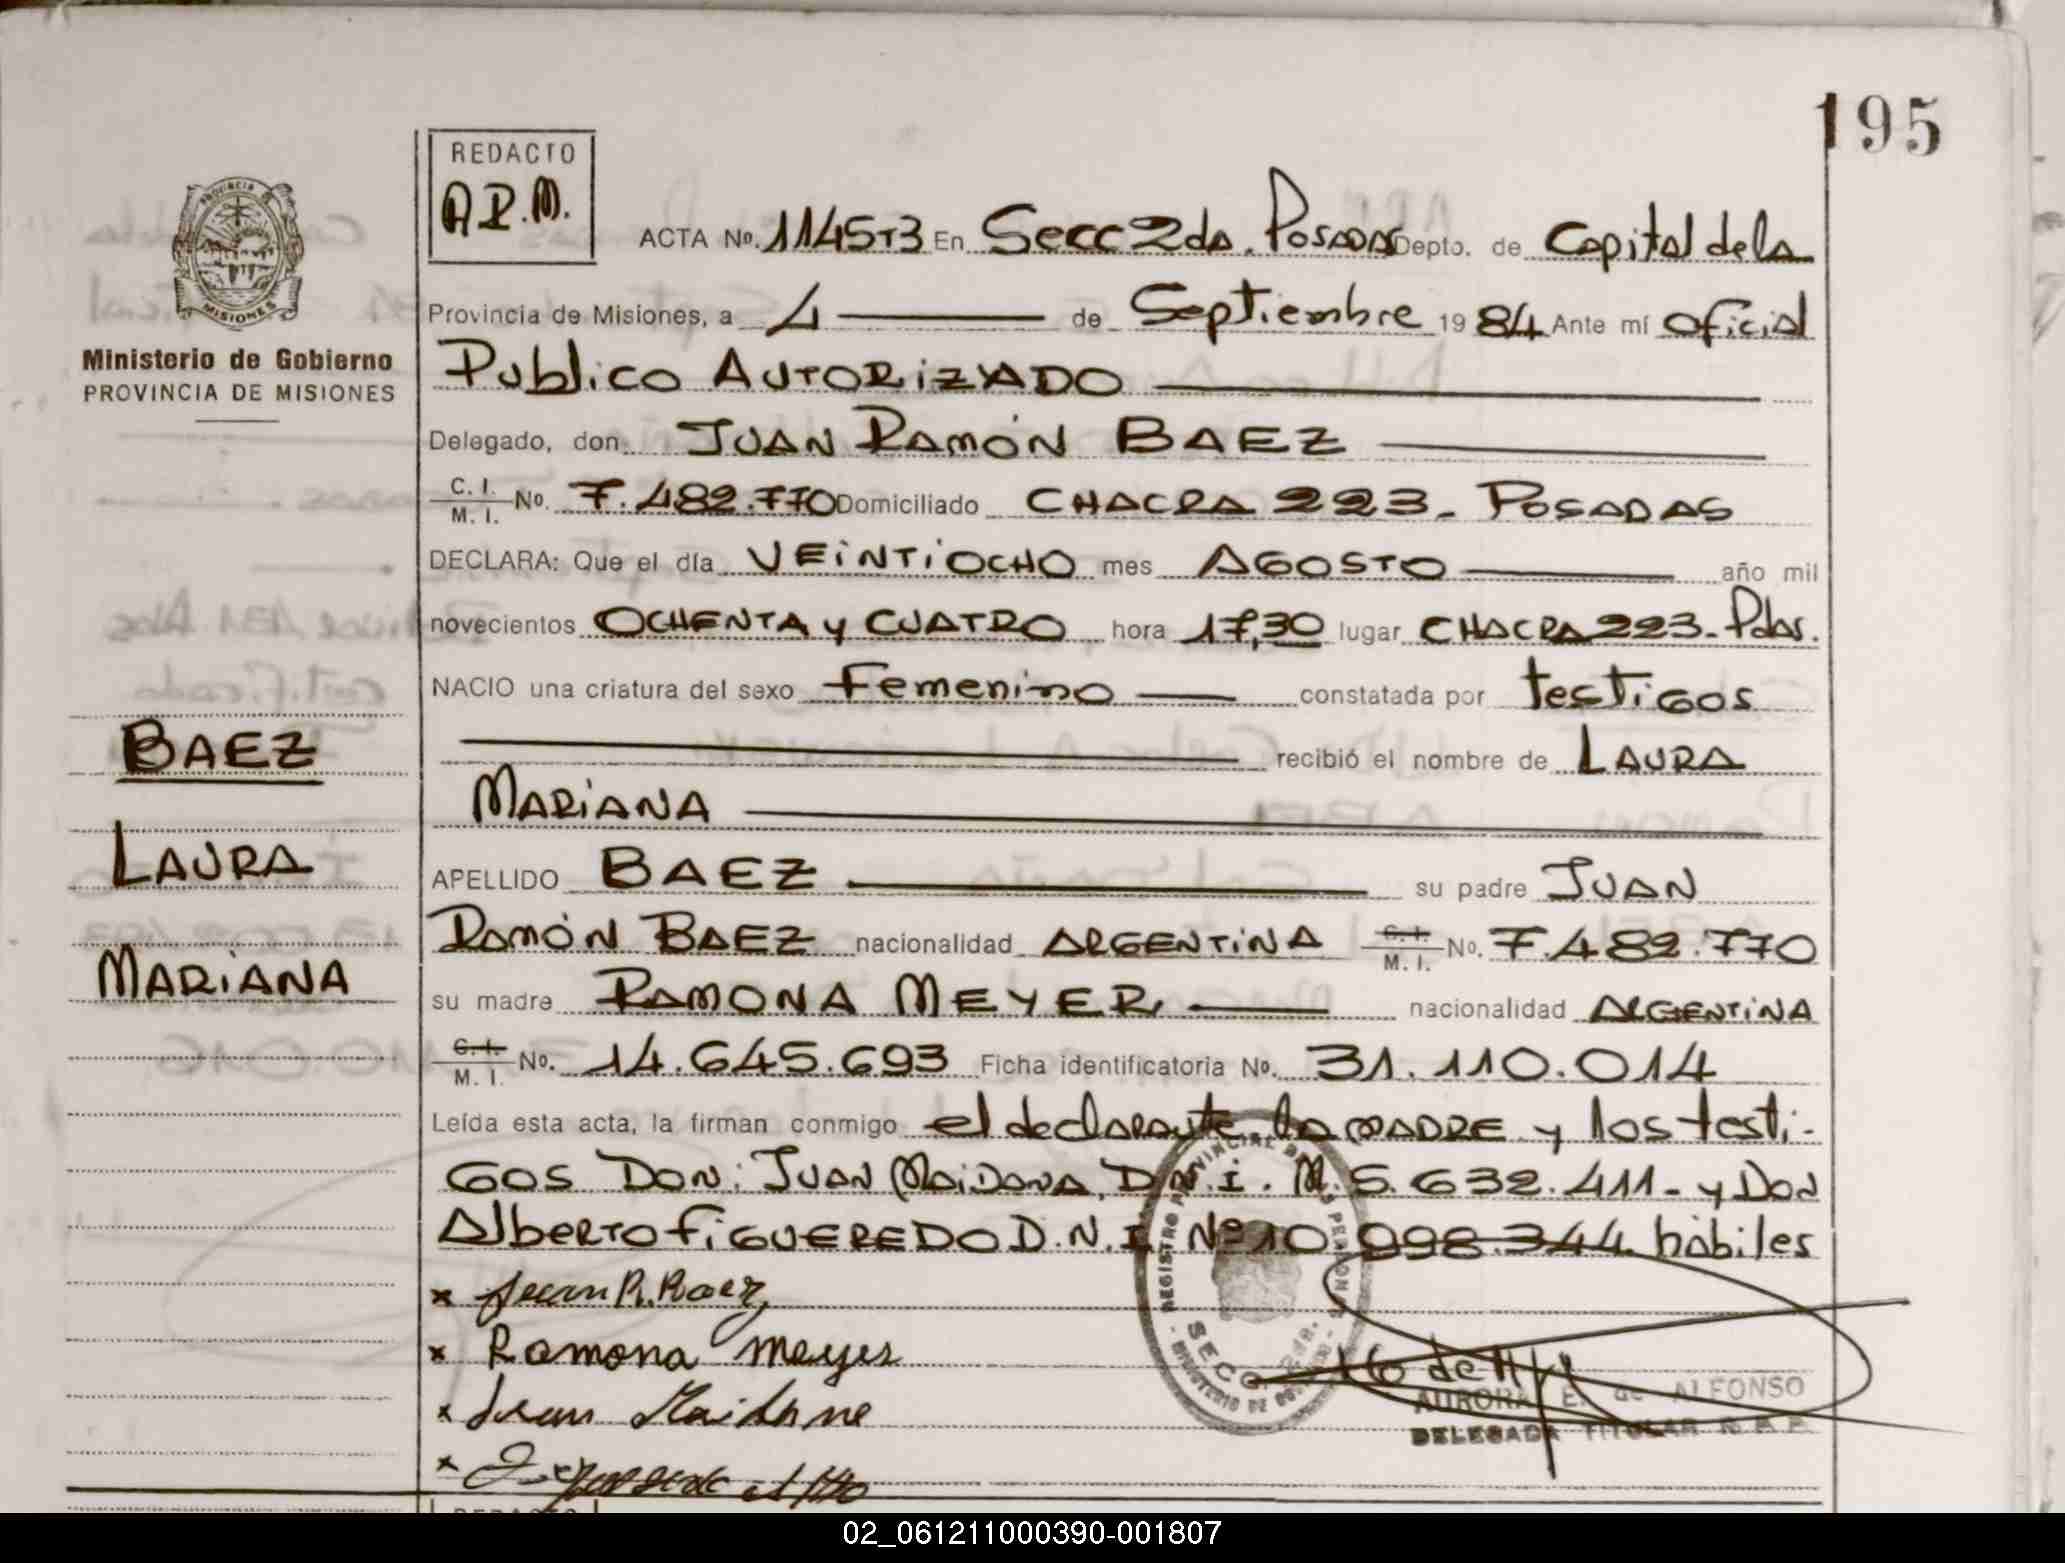 195
REDACTO
A.R.M.
ACTA No. 1145T3 En Secc 2da. Posadas Depto. de Capital de la
PROVINCIA
MISIONES
Provincia de Misiones, a 4 de Septiembre 1984 Ante mí Oficial
Ministerio de Gobierno
PROVINCIA DE MISIONES
Publico AUTORIZADO
Delegado, don JUAN RAMÓN BAEZ
C. I. M. I. No. 7.482.770 Domiciliado CHACRA 223- POSADAS
DECLARA: Que el día VEINTIOCHO mes AGOSTO año mil
novecientos OCHENTA y CUATRO hora 17,30 lugar CHACRA 223- Pdas.
NACIO una criatura del sexo Femenino constatada por testigos
recibió el nombre de LAURA
MARIANA
BAEZ
LAURA
MARIANA
APELLIDO BAEZ su padre JUAN
RAMÓN BAEZ nacionalidad ARGENTINA C. I. M. I. No. 7.482.770
su madre RAMONA MEYER nacionalidad ARGENTINA
C. I. M. I. No. 14.645.693 Ficha identificatoria No. 31.110.014
Leída esta acta, la firman conmigo el declarante la MADRE y los testi-
GOS DON: JUAN MAIDANA, D.N.I. M. 5.632.411- y Don
Alberto FIGUEREDO D.N.I. Nº 10.998.344 hábiles
x Juan R. Baez
x Ramona Meyer
x Juan Maidane
x
REGISTRO PROVINCIAL DE LAS PERSONAS
SECC. 2da.
AURORA E. de ALFONSO
DELEGADA TITULAR R.P.P.
REDACTO
02_061211000390-001807